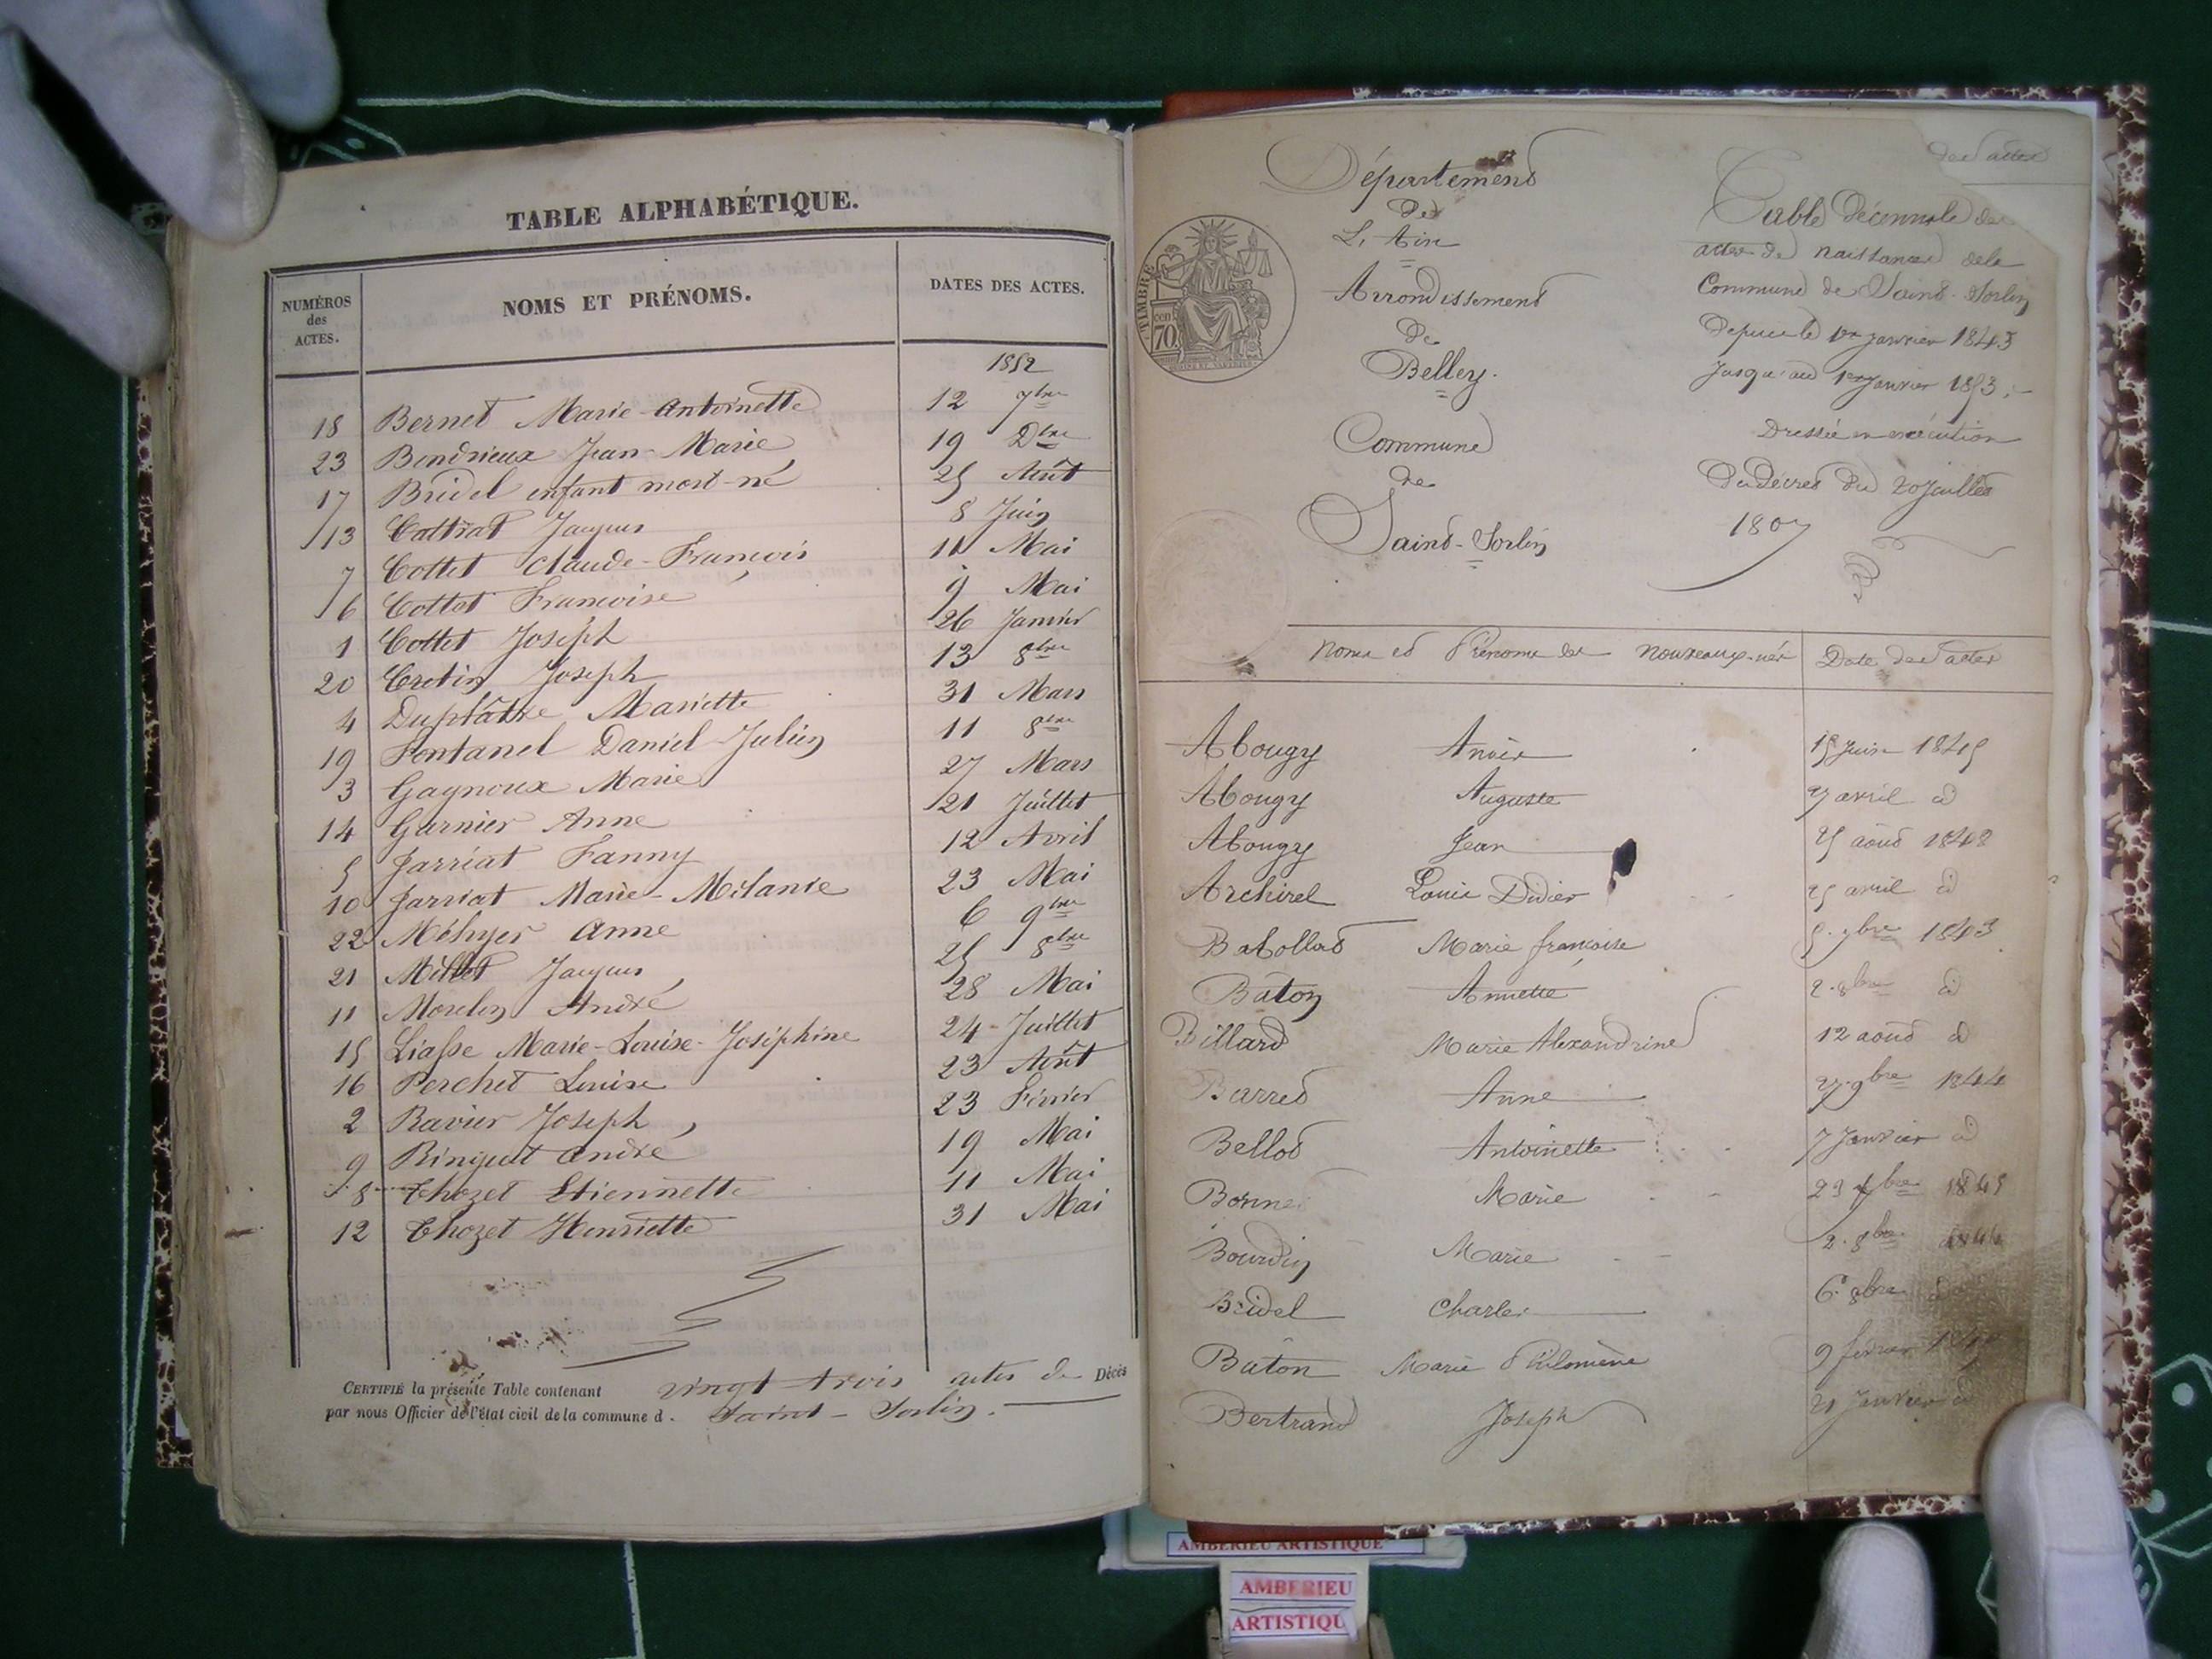 TABLE ALPHABÉTIQUE.
NUMÉROS des ACTES. NOMS ET PRÉNOMS. DATES DES ACTES.
1852
18 Bernet Marie-Antoinette 12 7bre
23 Bendrieux Jean-Marie 19 Dbre
17 Bridel enfant mort-né 25 Août
13 Cattrat Jacques 8 Juin
7 Cottet Claude-François 11 Mai
6 Cottet Françoise 9 Mai
1 Cottet Joseph 26 Janvier
20 Cretin Joseph 13 8bre
4 Duplâtre Mariette 31 Mars
19 Fontanel Daniel-Julien 11 8bre
3 Gagnoux Marie 27 Mars
14 Garnier Anne 21 Juillet
5 Jarriat Fanny 12 Avril
10 Jarriat Marie-Mélanie 23 Mai
22 Méhyer Anne 6 9bre
21 Millet Jacques 25 8bre
11 Morelin André 28 Mai
15 Liasse Marie-Louise-Joséphine 24 Juillet
16 Perchet Louise 23 Août
2 Ravier Joseph 23 Février
9 Ringuet André 19 Mai
8 Thozet Etiennette 11 Mai
12 Thozet Henriette 31 Mai
CERTIFIÉ la présente Table contenant vingt trois actes de Décès
par nous Officier de l'état civil de la commune d. Saint-Sorlin.
Département
de
L'Ain
Arrondissement
de
Belley.
Commune
de
Saint-Sorlin
TIMBRE
cen
70
des actes
Table décennale des
actes de naissances de la
Commune de Saint-Sorlin
depuis le 1er janvier 1843
Jusqu'au 1er Janvier 1853.-
Dressée en exécution
du décret du 20 Juillet
1807
Noms et Prénoms des nouveaux-nés Date des actes
Abougy Anaïs 15 Juin 1845
Abougy Auguste 7 avril d
Abougy Jean 25 août 1848
Archirel Louis Didier 25 avril d
Babollat Marie françoise 5. 7bre 1843
Bâton Annette 2. 8bre d
Billard Marie Alexandrine 12 août d
Barret Anne 27. 9bre 1844
Bellod Antoinette 7 Janvier d
Bonne Marie 23 bre 1845
Bourdin Marie 2. 8bre 1844
Bridel Charles 6. 8bre d
Bâton Marie Philomène 9 février
Bertrand Joseph 21 Janvier d
AMBERIEU ARTISTIQUE
AMBERIEU
ARTISTIQU